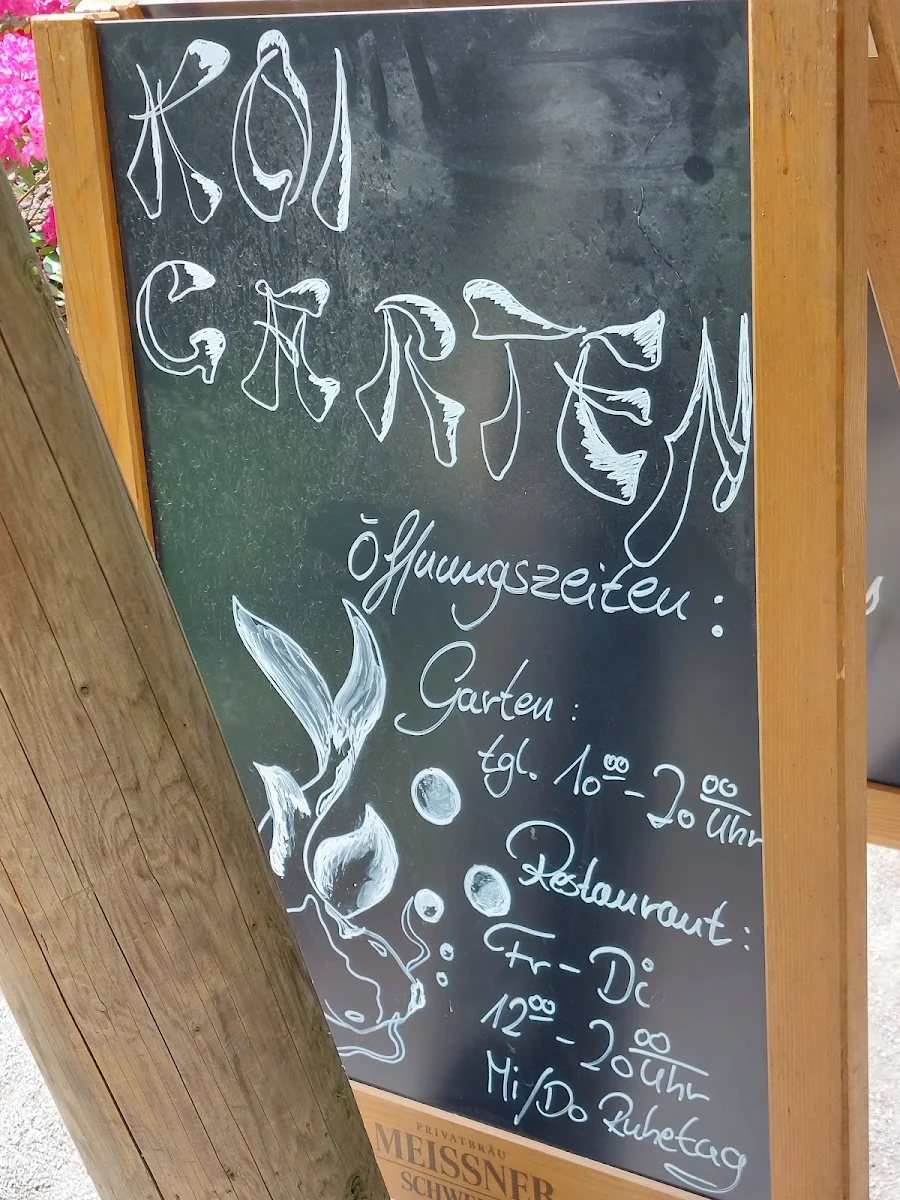 KOI
GARTEN
Öffnungszeiten:
Garten:
tgl. 10⁰⁰ - 20⁰⁰ Uhr
Restaurant:
Fr - Di
12⁰⁰ - 20⁰⁰ Uhr
Mi/Do Ruhetag
PRIVATBRÄU
MEISSNER